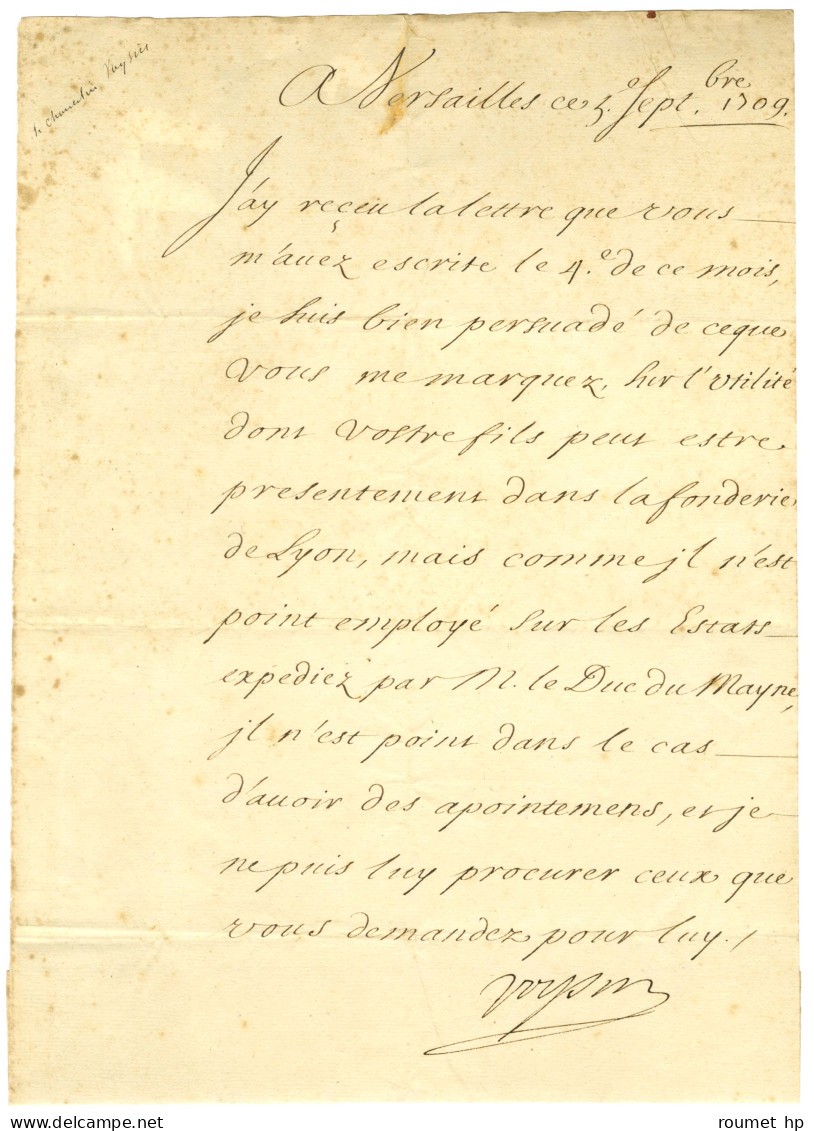 le chancelier Voysin
A Versailles ce 5.e Sept.bre 1709.
J'ay reçeu la lettre que vous
m'auez escrite le 4.e de ce mois,
je suis bien persuadé de ce que
vous me marquez, sur l'vtilité
dont vostre fils peut estre
presentement dans la fonderie
de Lyon, mais comme jl n'est
point employé sur les Estats
expediez par M. le Duc du Mayne,
jl n'est point dans le cas
d'auoir des apointemens, et je
ne puis luy procurer ceux que
vous demandez pour luy./
Voysin
www.delcampe.net
roumet hp